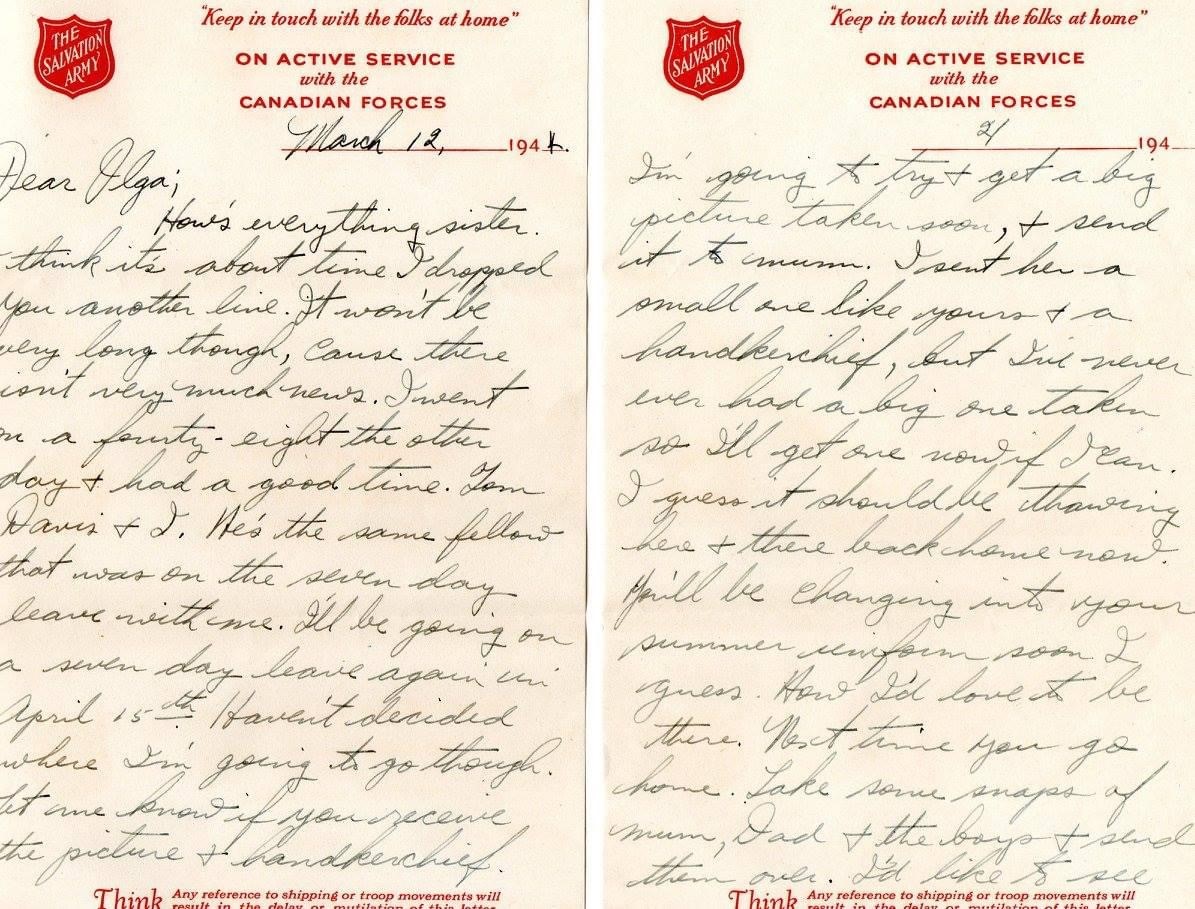 THE
SALVATION
ARMY
"Keep in touch with the folks at home"
ON ACTIVE SERVICE
with the
CANADIAN FORCES
March 12, 194 4.
Dear Olga;
How's everything sister.
think it's about time I dropped
you another line. It won't be
very long though, cause there
isn't very much news. I went
on a fourty-eight the other
day & had a good time. Tom
Davis & I. He's the same fellow
that was on the seven day
leave with me. I'll be going on
a seven day leave again in
April 15th Haven't decided
where I'm going to go though.
let me know if you receive
the picture & handkerchief.
Think Any reference to shipping or troop movements will
result in the delay or mutilation of this letter
THE
SALVATION
ARMY
"Keep in touch with the folks at home"
ON ACTIVE SERVICE
with the
CANADIAN FORCES
2/ 194
I'm going to try & get a big
picture taken soon, & send
it to mum. I sent her a
small one like yours & a
handkerchief, but I've never
ever had a big one taken
so I'll get one now if I can.
I guess it should be thawing
here & there back home now.
You'll be changing into your
summer uniform soon I
guess. How I'd love to be
there. Next time you go
home. Take some snaps of
mum, Dad & the boys & send
them over. I'd like to see
Think Any reference to shipping or troop movements will
result in the delay or mutilation of this letter